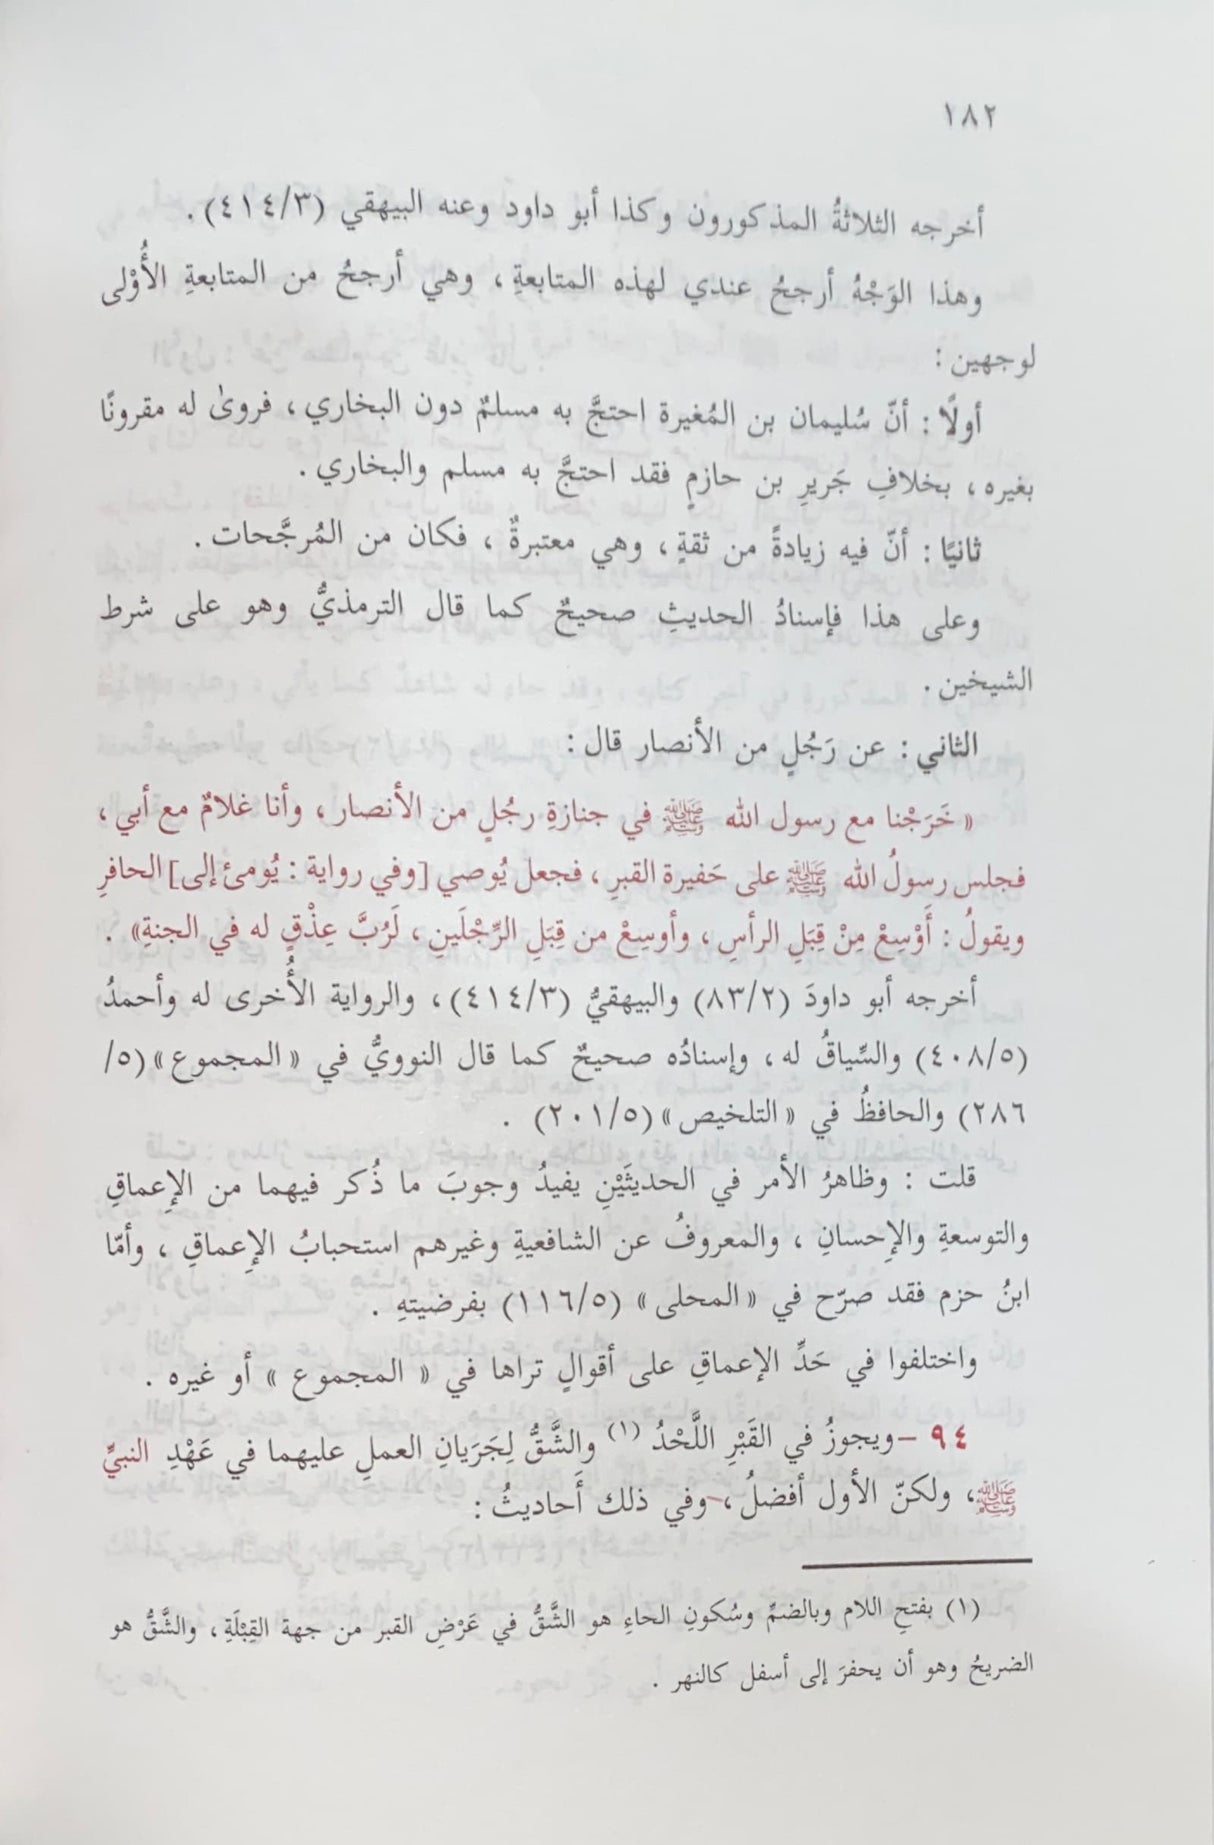 ١٨٢
أخرجه الثلاثةُ المذكورون وكذا أبو داود وعنه البيهقي (٤١٤/٣).
وهذا الوَجْهُ أرجحُ عندي لهذه المتابعةِ، وهي أرجحُ من المتابعةِ الأُوْلى
لوجهين :
أولًا : أنّ سُليمان بن المُغيرة احتجَّ به مسلمٌ دون البخاري، فروىٰ له مقرونًا
بغيره، بخلافِ جَريرِ بن حازمٍ فقد احتجَّ به مسلم والبخاري.
ثانيًا : أنّ فيه زيادةً من ثقةٍ، وهي معتبرةٌ، فكان من المُرجَّحات.
وعلى هذا فإسنادُ الحديثِ صحيحٌ كما قال الترمذيُّ وهو على شرط
الشيخين.
الثاني : عن رَجُلٍ من الأنصار قال :
« خَرَجْنا مع رسول الله ﷺ في جنازةِ رجُلٍ من الأنصار، وأنا غلامٌ مع أبي،
فجلس رسولُ الله ﷺ على حَفيرة القبرِ، فجعل يُوصي [وفي رواية : يُومئ إلى] الحافرِ
ويقولُ : أَوْسِعْ مِنْ قِبَلِ الرأسِ، وأوسِعْ من قِبَلِ الرِّجْلَينِ، لَرُبَّ عِذْقٍ له في الجنةِ» .
أخرجه أبو داودَ (٨٣/٢) والبيهقيُّ (٤١٤/٣)، والرواية الأُخرى له وأحمدُ
(٤٠٨/٥) والسِّياقُ له، وإسنادُه صحيحٌ كما قال النوويُّ في « المجموع » (٥/
٢٨٦) والحافظُ في « التلخيص » (٢٠١/٥) .
قلت : وظاهرُ الأمر في الحديثَيْنِ يفيدُ وجوبَ ما ذُكر فيهما من الإِعماقِ
والتوسعةِ والإِحسانِ، والمعروفُ عن الشافعيةِ وغيرهم استحبابُ الإِعماقِ، وأمّا
ابنُ حزم فقد صرّح في « المحلى » (١١٦/٥) بفرضيتهِ .
واختلفوا في حَدِّ الإعماقِ على أقوالٍ تراها في « المجموع » أو غيره .
٩٤ - ويجوزُ في القَبْرِ اللَّحْدُ (١) والشَّقُّ لِجَرَيانِ العملِ عليهما في عَهْدِ النبيِّ
ﷺ، ولكنّ الأول أفضلُ، وفي ذلك أَحاديثُ :
(١) بفتحِ اللام وبالضمِّ وسُكونِ الحاءِ هو الشَّقُّ في عَرْضِ القبر من جهة القِبْلَةِ، والشَّقُّ هو
الضريحُ وهو أن يحفرَ إلى أسفل كالنهر .